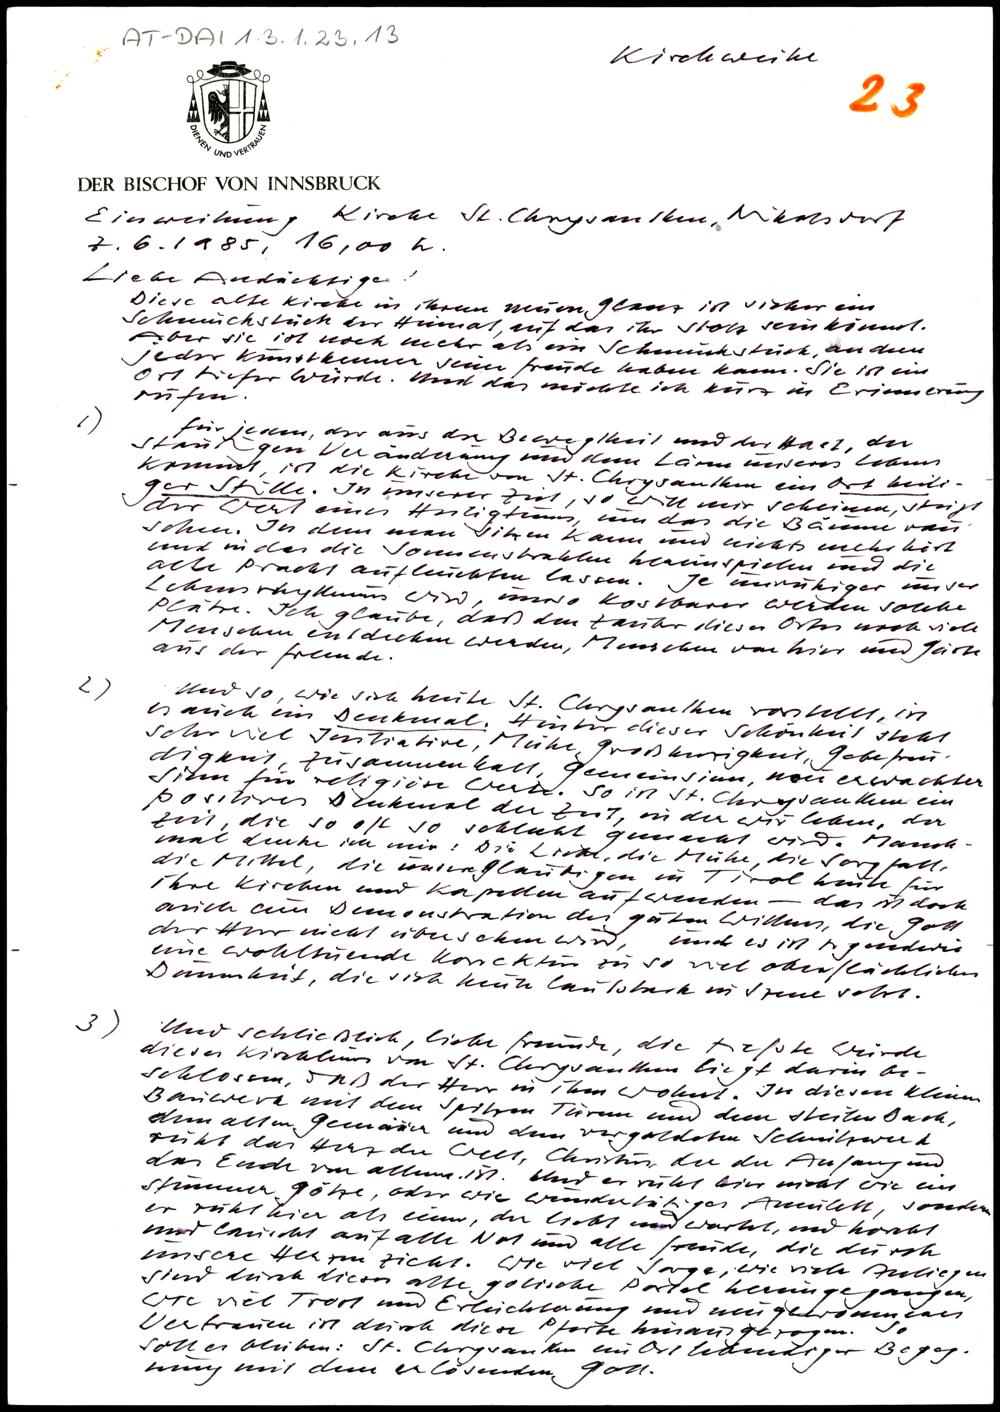 AT-DAI 1.3.1.23.13
Kirchweihe
23
DIENEN UND VERTRAUEN
DER BISCHOF VON INNSBRUCK
Einweihung Kirche St. Chrysanthen, Nikolsdorf
7.6.1985, 16,00 h.
Liebe Andächtige!
Diese alte Kirche in ihrem neuen Glanz ist sicher ein
Schmuckstück der Heimat, auf das ihr stolz sein könnt.
Aber sie ist noch mehr als ein Schmuckstück, an dem
jeder Kunstkenner seine Freude haben kann. Sie ist ein
Ort tiefer Würde. Und das möchte ich kurz in Erinnerung
rufen.
1) Für jeden, der aus der Beweglheit und der Hast, der
ständigen Veränderung und dem Lärm unseres Lebens
kommt, ist die Kirche von St. Chrysanthen ein Ort heili-
ger Stille. In unserer Zeit, so will mir scheinen, steigt
der Wert eines Heiligtums, um das die Bäume rau-
schen. In dem man sitzen kann und nichts mehr hört
und in das die Sonnenstrahlen hereinspielen und die
alte Pracht aufleuchten lassen. Je unruhiger unser
Lebensrhythmus wird, umso kostbarer werden solche
Plätze. Ich glaube, daß den Zauber dieses Ortes noch viele
Menschen entdecken werden, Menschen von hier und Gäste
aus der Fremde.
2) Und so, wie sich heute St. Chrysanthen vorstellt, ist
es auch ein Denkmal. Hinter dieser Schönheit steht
sehr viel Initiative, Mühe, Großherzigkeit, Gebefreu-
digkeit, Zusammenhalt, Gemeinsinn, neu erwachter
Sinn für religiöse Werte. So ist St. Chrysanthen ein
positives Denkmal der Zeit, in der wir leben, der
Zeit, die so oft so schlecht gemacht wird. Manch-
mal denke ich mir: Die Liebe, die Mühe, die Sorgfalt,
die Mittel, die unsere Gläubigen in Tirol heute für
ihre Kirchen und Kapellen aufwenden — das ist doch
auch eine Demonstration des guten Willens, die Gott
der Herr nicht übersehen wird, und es ist irgendwie
eine wohltuende Korrektur zu so viel oberflächlicher
Dummheit, die sich heute lautstark in Szene setzt.
3) Und schließlich, liebe Freunde, die tiefste Würde
dieses Kirchleins von St. Chrysanthen liegt darin be-
schlossen, daß der Herr in ihm wohnt. In diesem kleinen
Bauwerk mit dem spitzen Turm und dem steilen Dach,
dem alten Gemäuer und dem vergoldeten Schnitzwerk
ruht das Herz der Welt, Christus, der der Anfang und
das Ende von allem ist. Und er ruht hier nicht wie ein
stummer Götze, oder wie wundertätiges Amulett, sondern
er ruht hier als einer, der liebt und wartet, und horcht
und lauscht auf alle Not und alle Freude, die durch
unsere Herzen zieht. Wie viel Sorge, wie viele Anliegen
sind durch dieses alte gotische Portal hereingegangen,
wie viel Trost und Erleichterung und neugewonnenes
Vertrauen ist durch diese Pforte hinausgezogen. So
soll es bleiben: St. Chrysanthen ein Ort lebendiger Begeg-
nung mit dem erlösenden Gott.